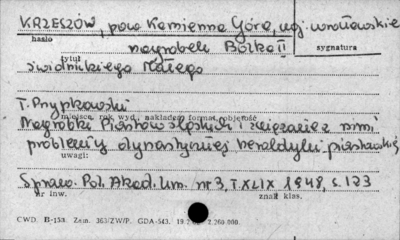 KRZESZÓW, pow. Kamienna Góra, woj. wrocławskie
hasło
nagrobek Bolka II
sygnatura
tytuł
świdnickiego Małego
T. Przypkowski
miejsce, rok wyd., nakładem format, objętość
Nagrobki Piastów śląskich i związane z nimi
problemy dynastycznej heraldyki piastowskiej
uwagi:
Spraw. Pol. Akad. Um. nr 3, T. XLIX 1948, s. 123
nr inw.
znak klas.
CWD. B-138. Zam. 363/ZW/P. GDA-543. 2.260.000.